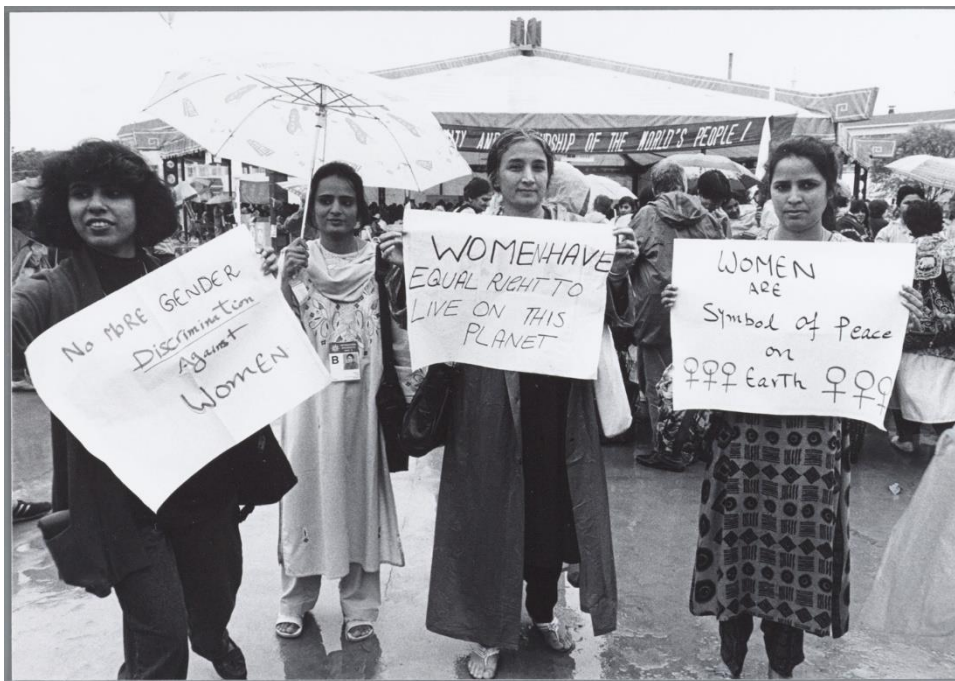 ITY AND FRIENDSHIP OF THE WORLD'S PEOPLE!
NO MORE GENDER
Discrimination
Against
WOMEN
B
WOMEN HAVE
EQUAL RIGHT TO
LIVE ON THIS
PLANET
WOMEN
ARE
Symbol of Peace
on
♀♀♀ Earth ♀♀♀